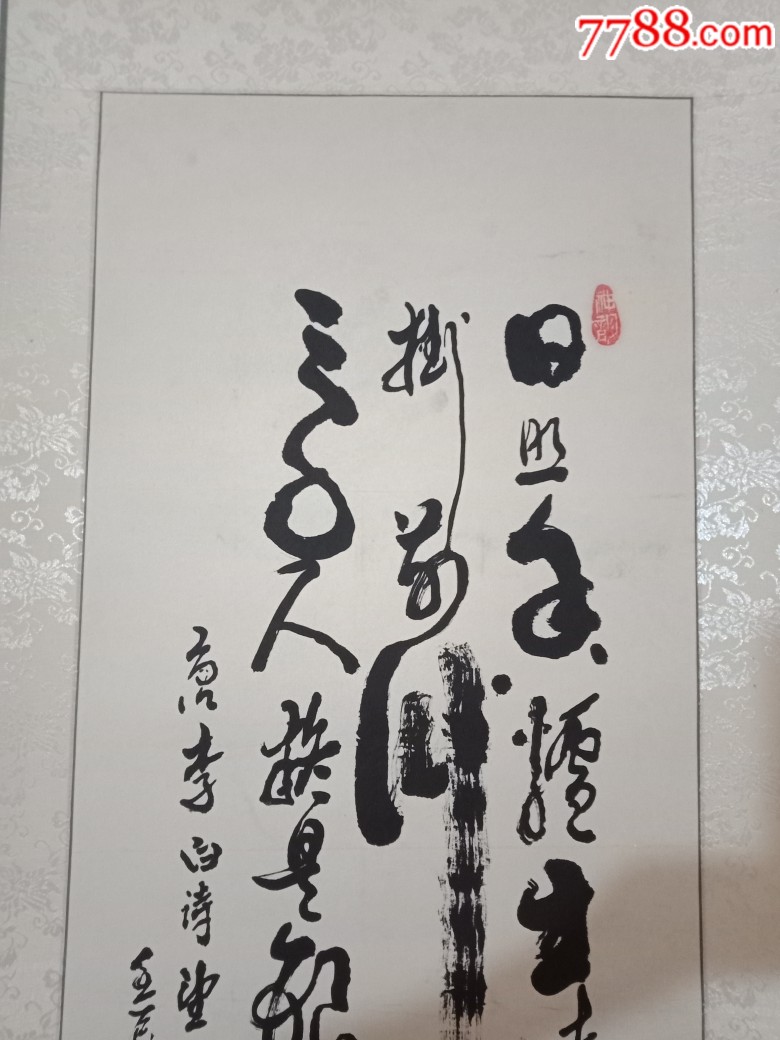 7788.com
日照香爐生
掛前川
三千尺疑是銀
李白诗望